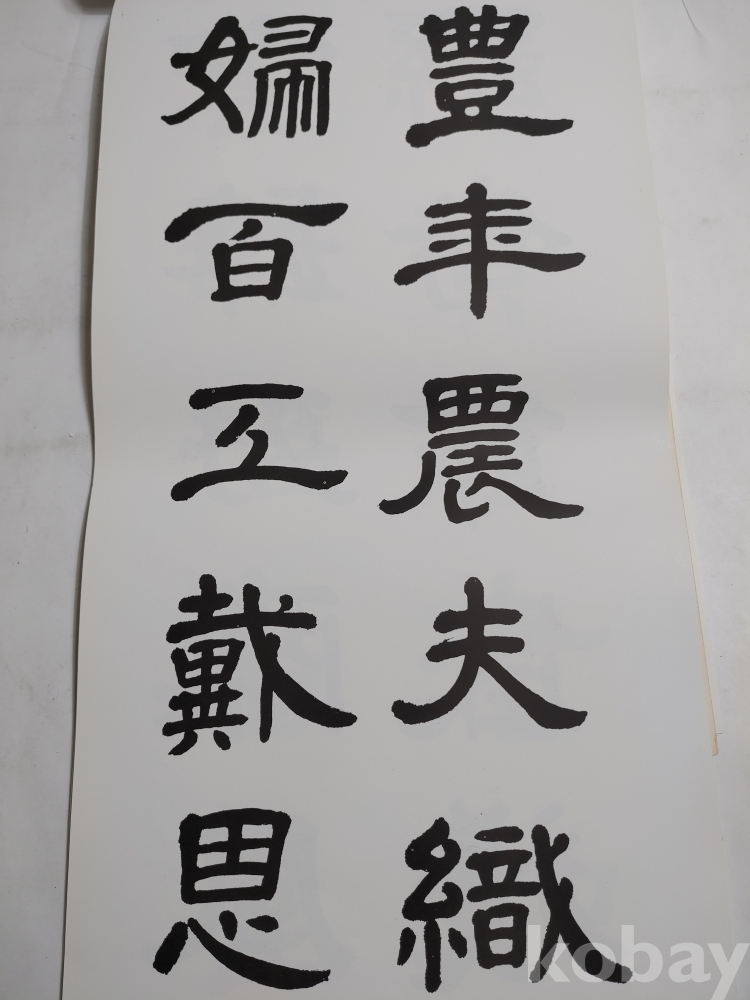 豊年農夫織
婦百工戴恩
kobay